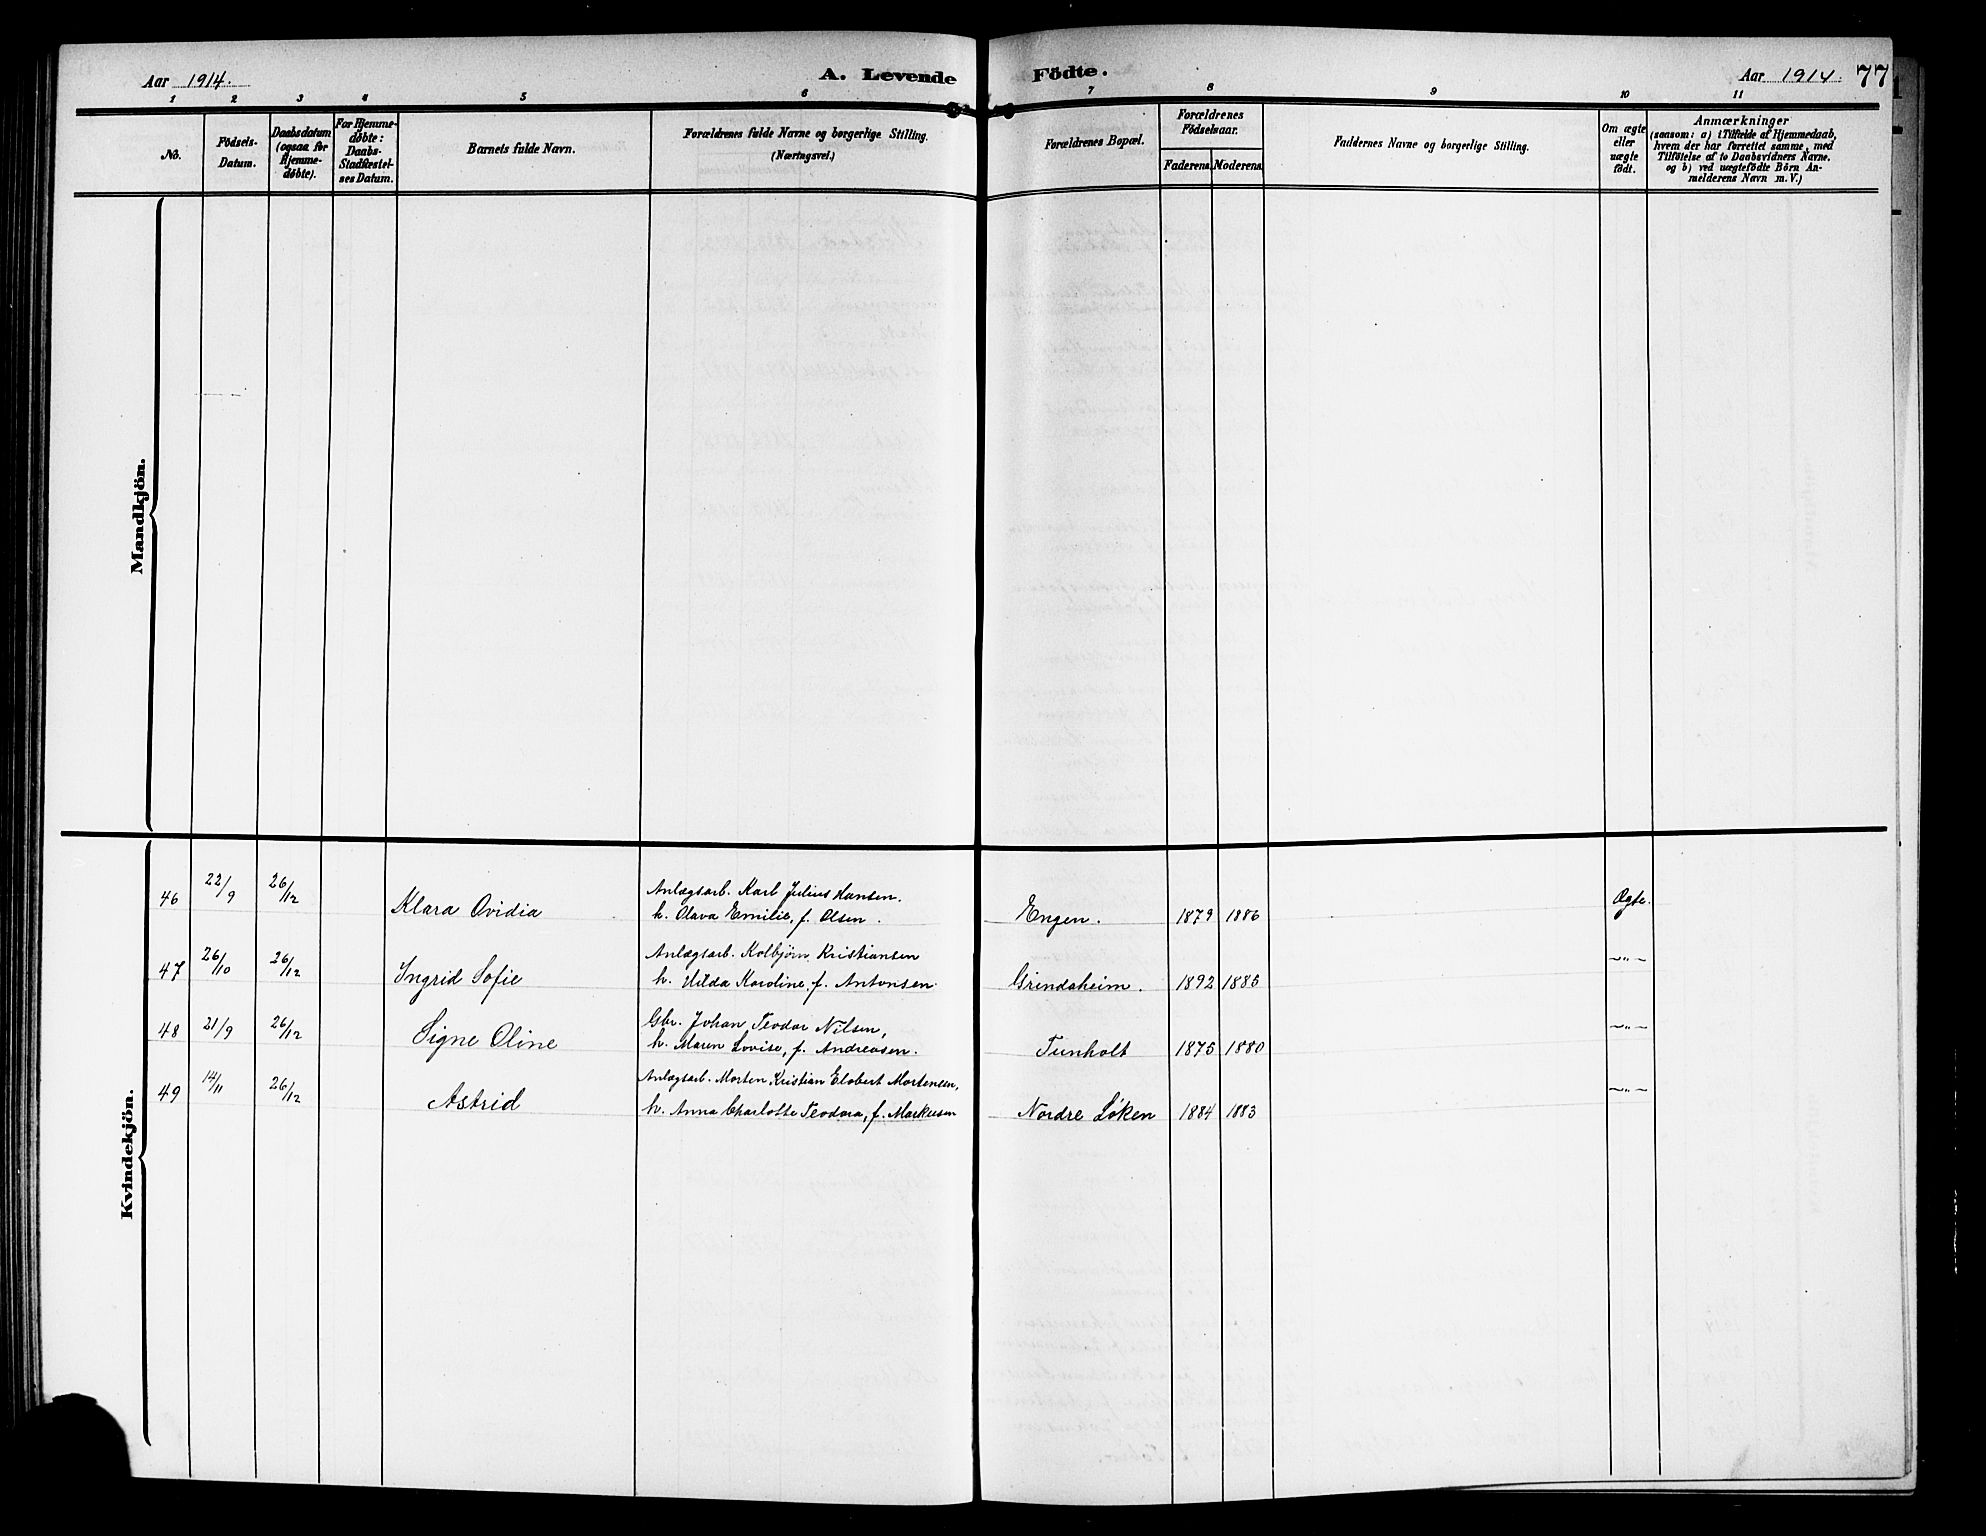 Aar 1914.
A. Levende Fødte.
Aar 1914.
77
1 2 3 4 5 6 7 8 9 10 11
No.
Fødsels-
Datum.
Daabsdatum
(ogsaa for
Hjemme-
døbte).
For Hjemme-
døbte:
Daabs-
Stadfæstel-
ses Datum.
Barnets fulde Navn.
Forældrenes fulde Navne og borgerlige Stilling.
(Næringsvei.)
Forældrenes Bopæl.
Forældrenes
Fødselsaar.
Faderens. Moderens.
Faddernes Navne og borgerlige Stilling.
Om ægte
eller
uægte
født.
Anmærkninger
(saasom: a) i Tilfælde af Hjemmedaab,
hvem der har forrettet samme, med
Tilføielse af to Daabsvidners Navne.
og b) ved uægtefødte Børn An-
melderens Navn m. V.)
Mandkjön.
Kvindekjön.
46 22/9 26/12 Klara Ovidia
Anlægsarb. Karl Julius Hansen.
h. Olava Emilie, f. Olsen.
Engen. 1879 1886 Ægte.
47 26/10 26/12 Ingrid Sofie
Anlægsarb. Kolbjørn Kristiansen
h. Hilda Karoline, f. Antonsen.
Grindaheim. 1892 1885 —"—
48 21/9 26/12 Signe Oline
Gbr. Johan Teodor Nilsen,
h. Maren Lovise, f. Andreasen.
Tunholt 1875 1880 —"—
49 14/11 26/12 Astrid
Anlægsarb. Morten Kristian Elobert Mortensen,
h. Anna Charlotte Teodora, f. Markusen
Nordre Løken 1884 1883 —"—